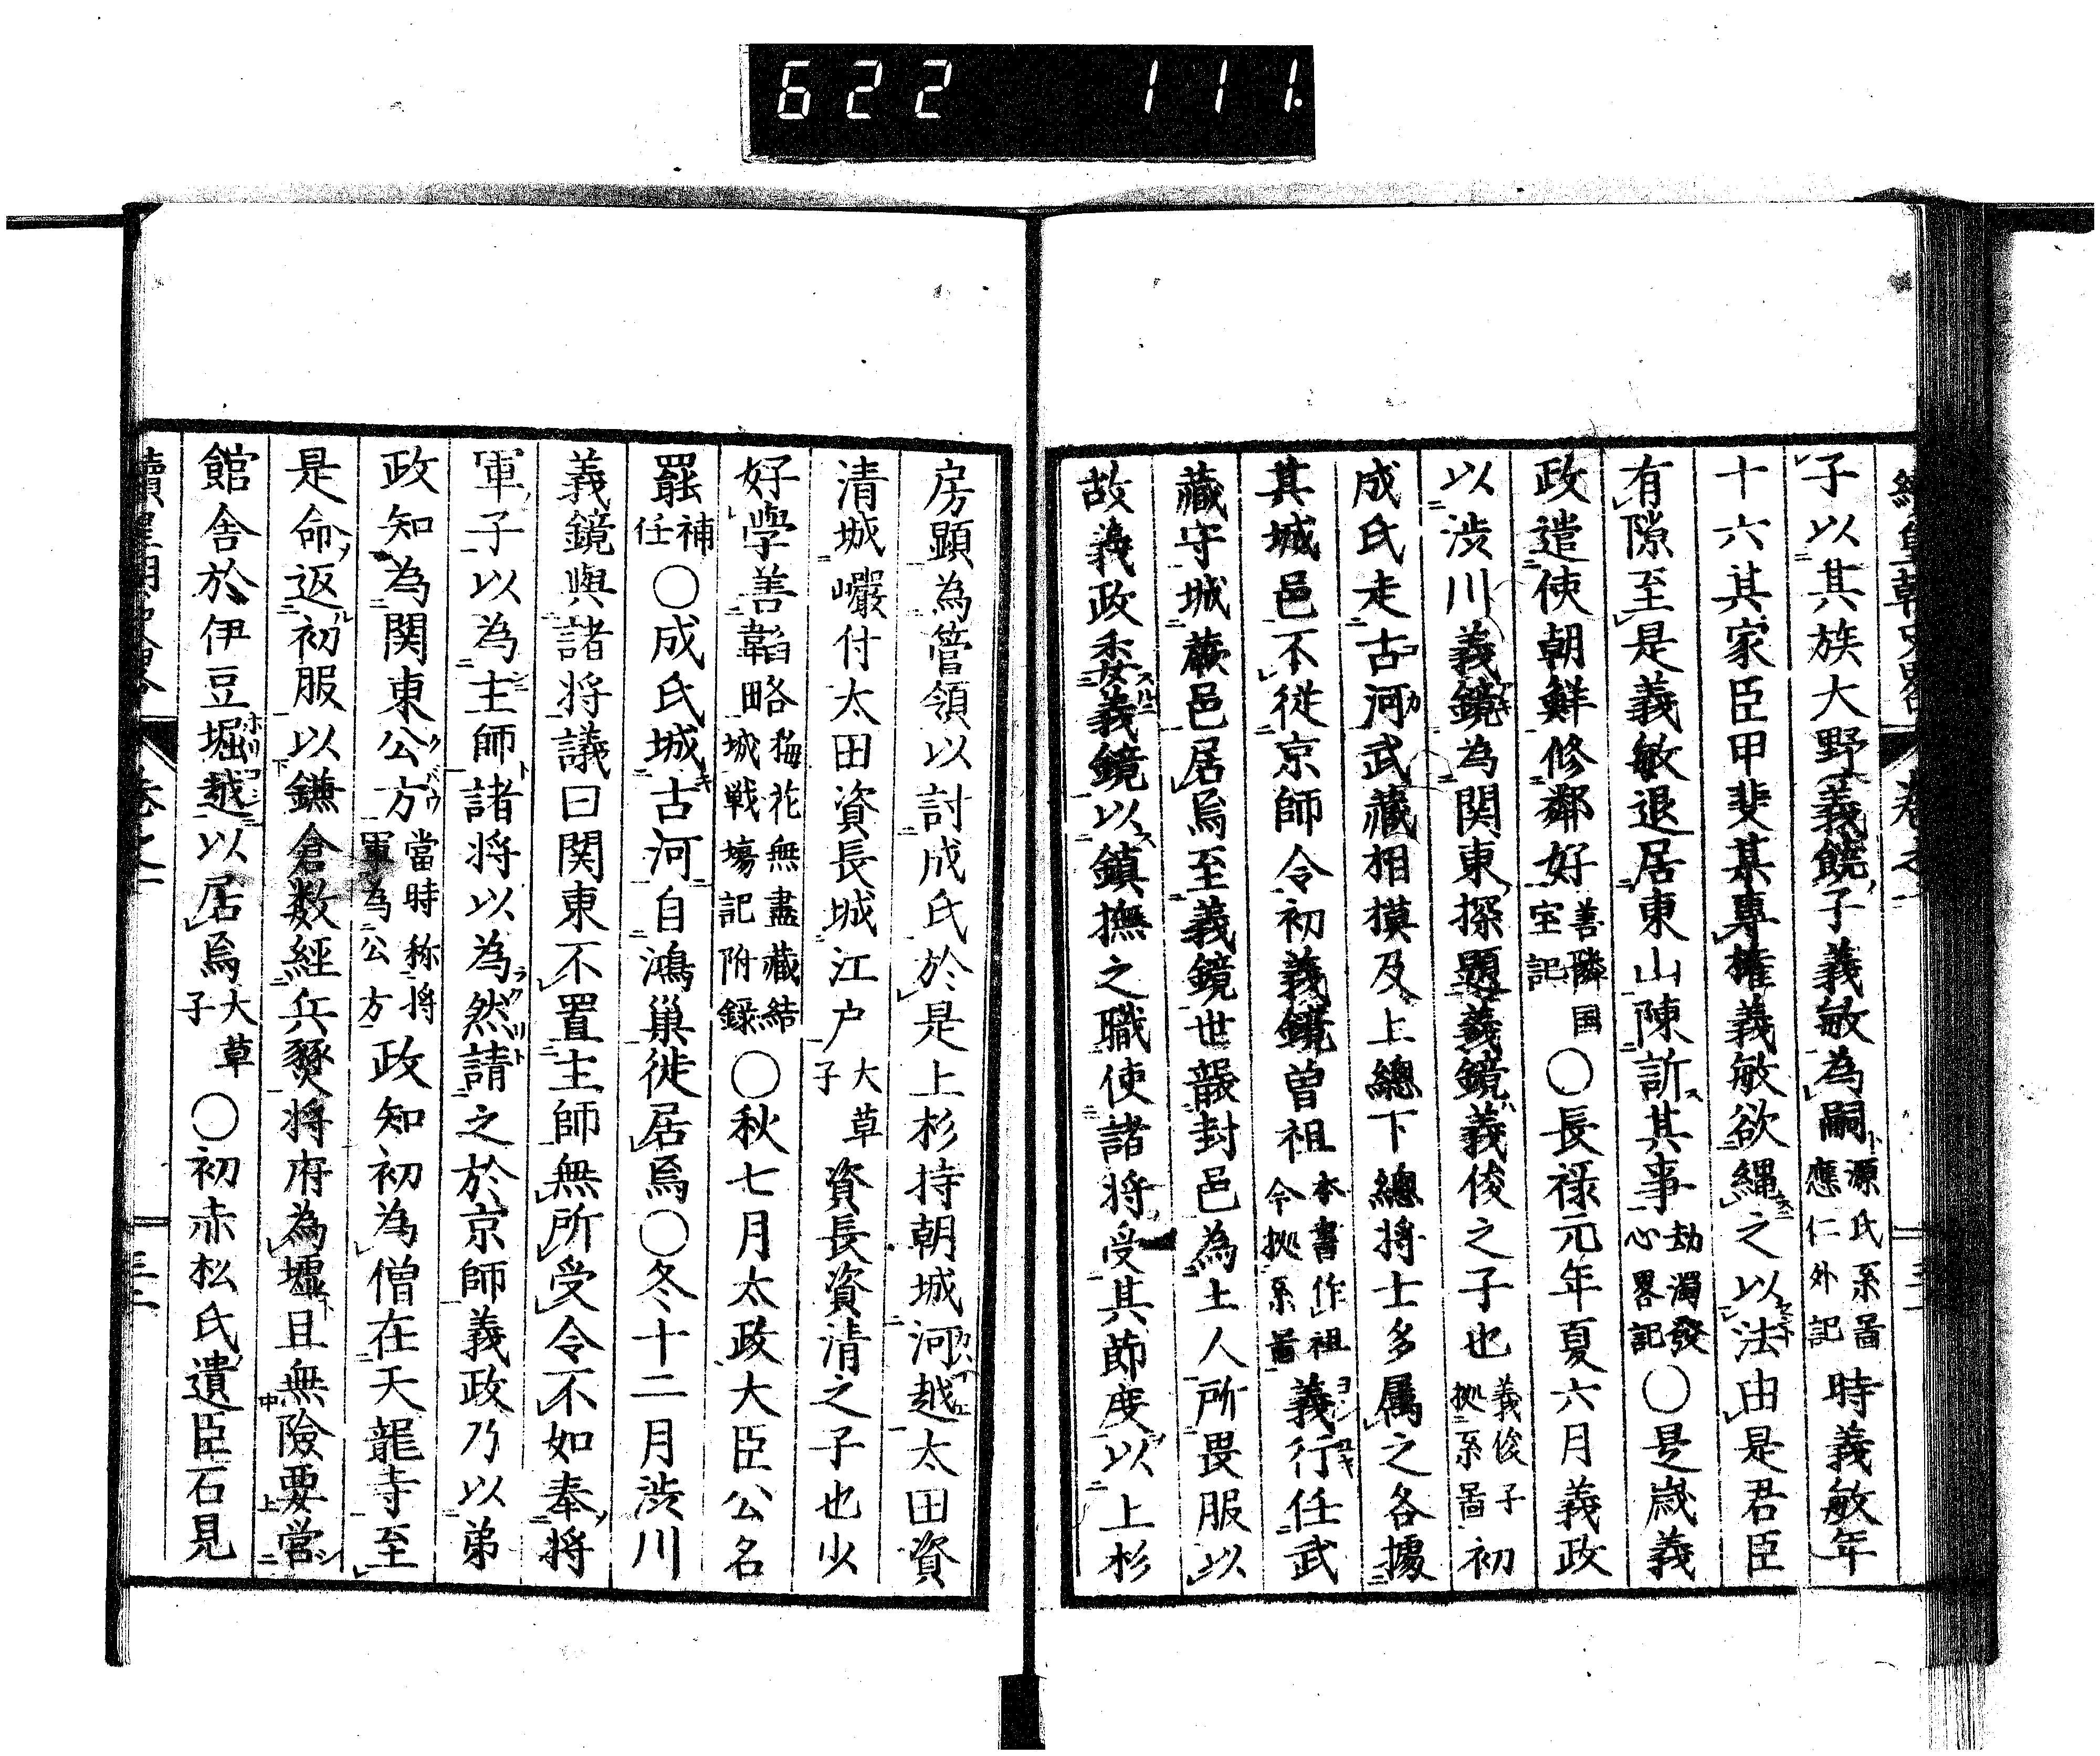 622 111.
子以其族大野義饒子義敏為嗣源氏系啚應仁外記時義敏年
十六其家臣甲斐某專権義敏欲縄之以法由是君臣
有隙至是義敏退居東山陳訴其事劫濁發心畧記〇是歳義
政遣使朝鮮修鄰好善隣国宝記〇長禄元年夏六月義政
以渋川義鏡為関東探題義鏡義俊之子也義俊子拠系啚初
成氏走古河武藏相摸及上總下總将士多属之各據
其城邑不従京師令初義鏡曽祖本書作祖今拠系啚義行任武
藏守城蕨邑居焉至義鏡世襲封邑為土人所畏服以
故義政委義鏡以鎮撫之職使諸将受其節度以上杉
房顕為管領以討成氏於是上杉持朝城河越太田資
清城巖付太田資長城江户大草子資長資清之子也少
好學善韜略梅花無盡藏結城戦塲記附錄〇秋七月太政大臣公名
罷補任〇成氏城古河自鴻巣徙居焉〇冬十二月渋川
義鏡與諸将議曰関東不置主師無所受令不如奉将
軍子以為主師諸将以為然請之於京師義政乃以弟
政知為関東公方當時称将軍為公方政知初為僧在天龍寺至
是命返初服以鎌倉数經兵燹将府為墟且無險要営
館舎於伊豆堀越以居焉大草子〇初赤松氏遺臣石見